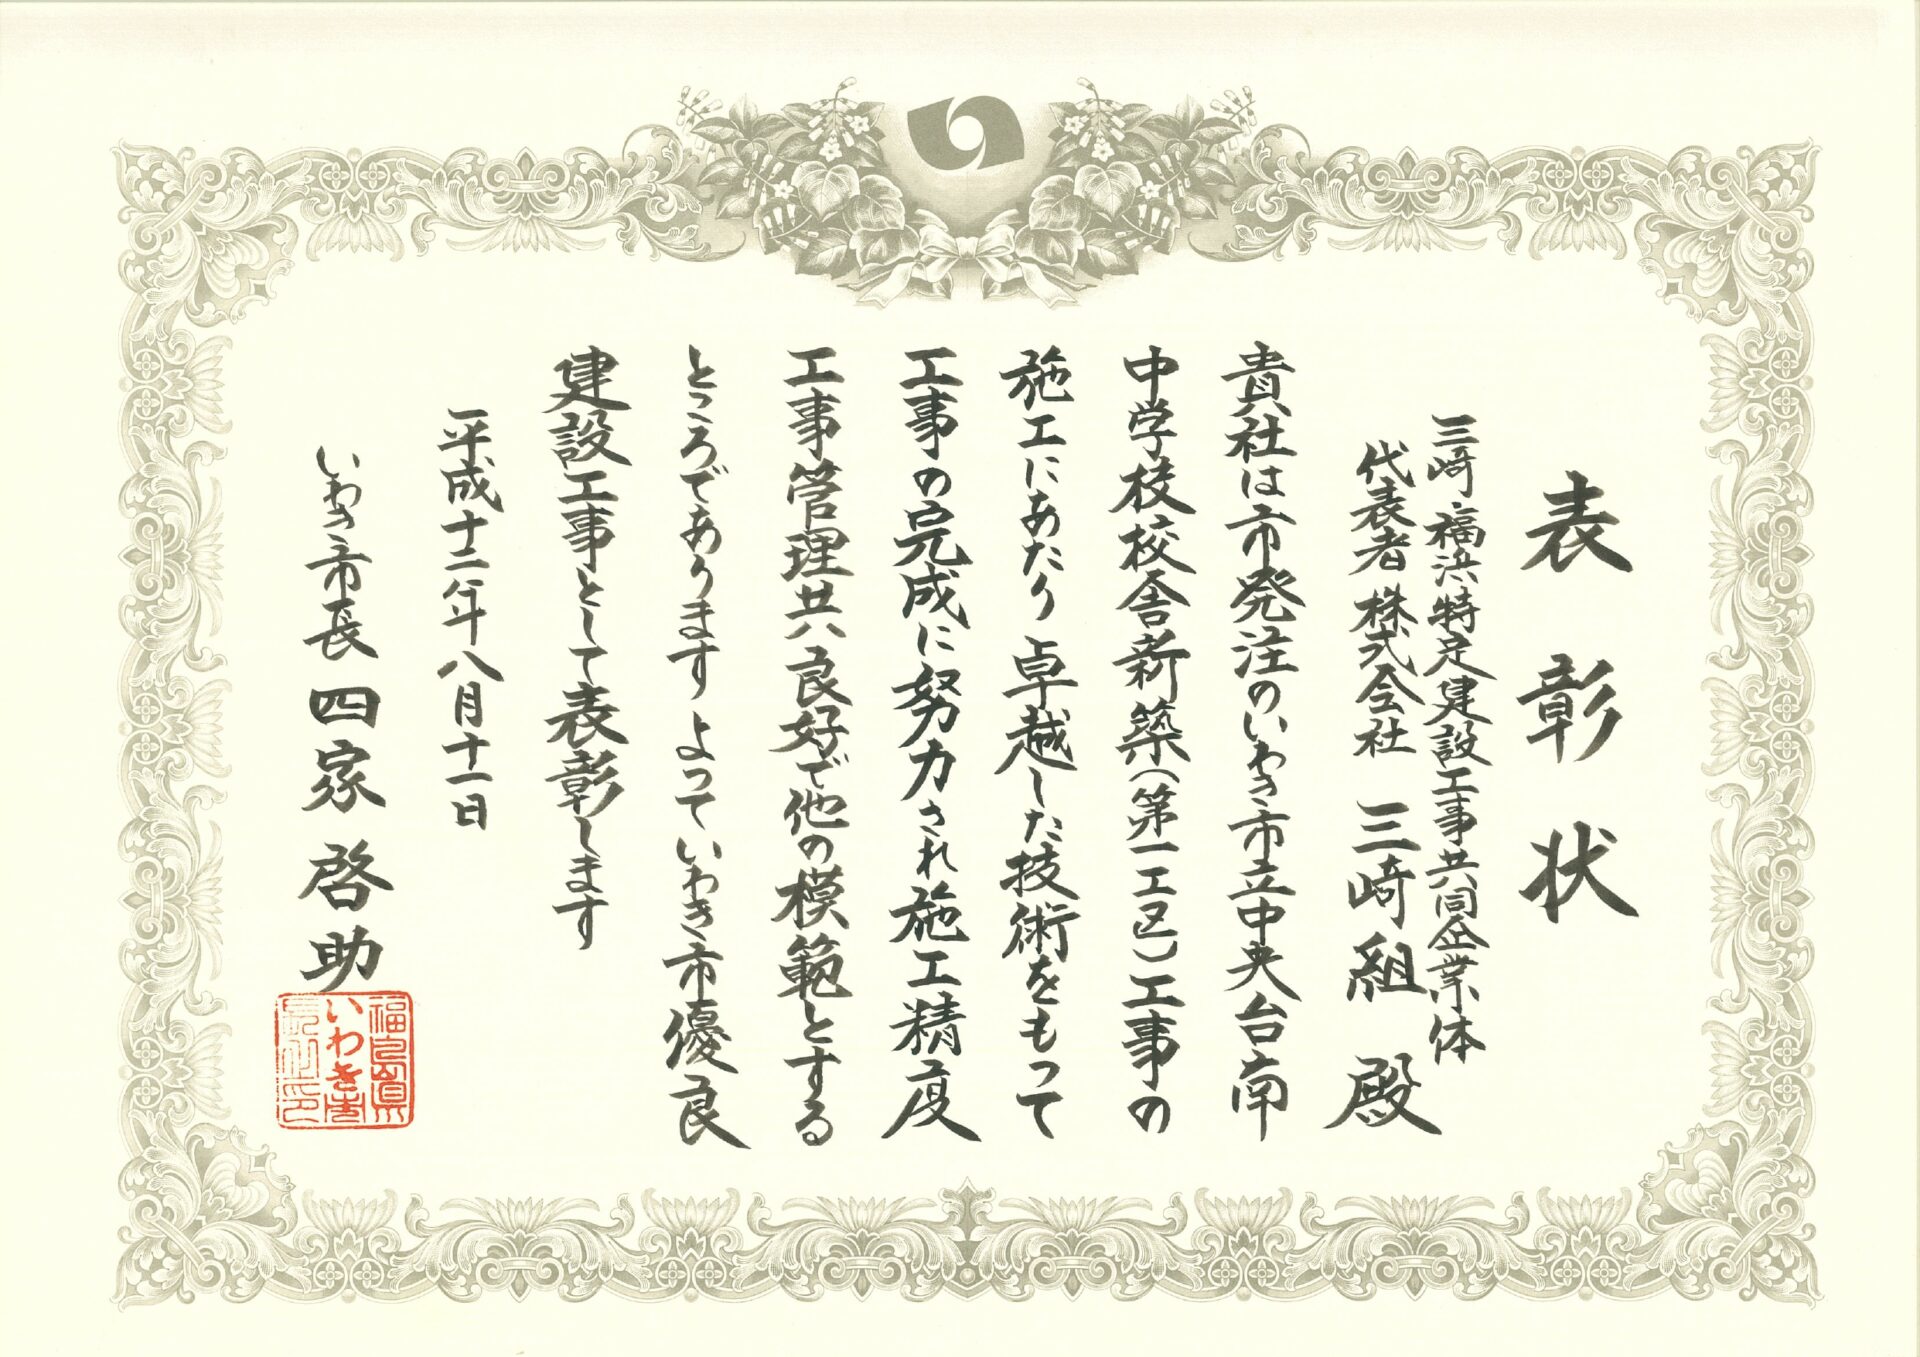 表彰状
三崎・福浜特定建設工事共同企業体
代表者 株式会社 三崎組 殿
貴社は市発注のいわき市立中央台南
中学校校舎新築(第一工区)工事の
施工にあたり 卓越した技術をもって
工事の完成に努力され施工精度
工事管理共良好で他の模範とする
ところであります よっていわき市優良
建設工事として表彰します
平成十二年八月十一日
いわき市長 四家啓助
福島県
いわき市
長之印